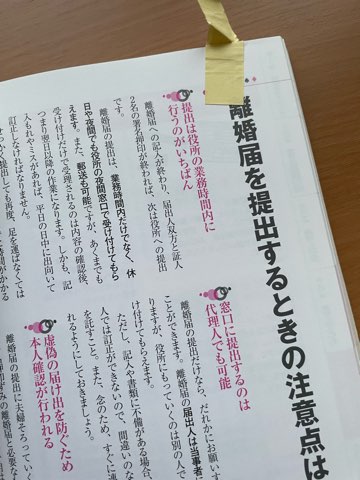 離婚届を提出するときの注意点は
提出は役所の業務時間内に
行うのがいちばん
離婚届への記入が終わり、届出人双方と証人
2名の署名押印が終われば、次は役所への提出
です。
離婚届の提出は、業務時間内だけでなく、休
日や夜間でも役所の夜間窓口で受け付けてもら
えます。また、郵送も可能ですが、あくまでも
受け付けだけで受理されるのは内容の確認後、
つまり翌日以降の作業になります。しかも、記
入もれやミスがあれば、平日の日中に出向いて
訂正しなければなりません。
提出しても再度、足を運ばなくては
窓口に提出するのは
代理人でも可能
離婚届の提出だけなら、だれかにお願いす
ことができます。離婚届の届出人は当事者に
りますが、役所にもっていくのは別の人で
け付けてもらえます。
ただし、記入や書類に不備がある場合、
人では訂正ができないので、間違いのな
を記すこと。また、念のため、すぐに連
れるようにしておきましょう。
虚偽の届け出を防ぐため
本人確認が行われる
離婚届の提出に夫婦そろっていく
みの離婚届と必要な